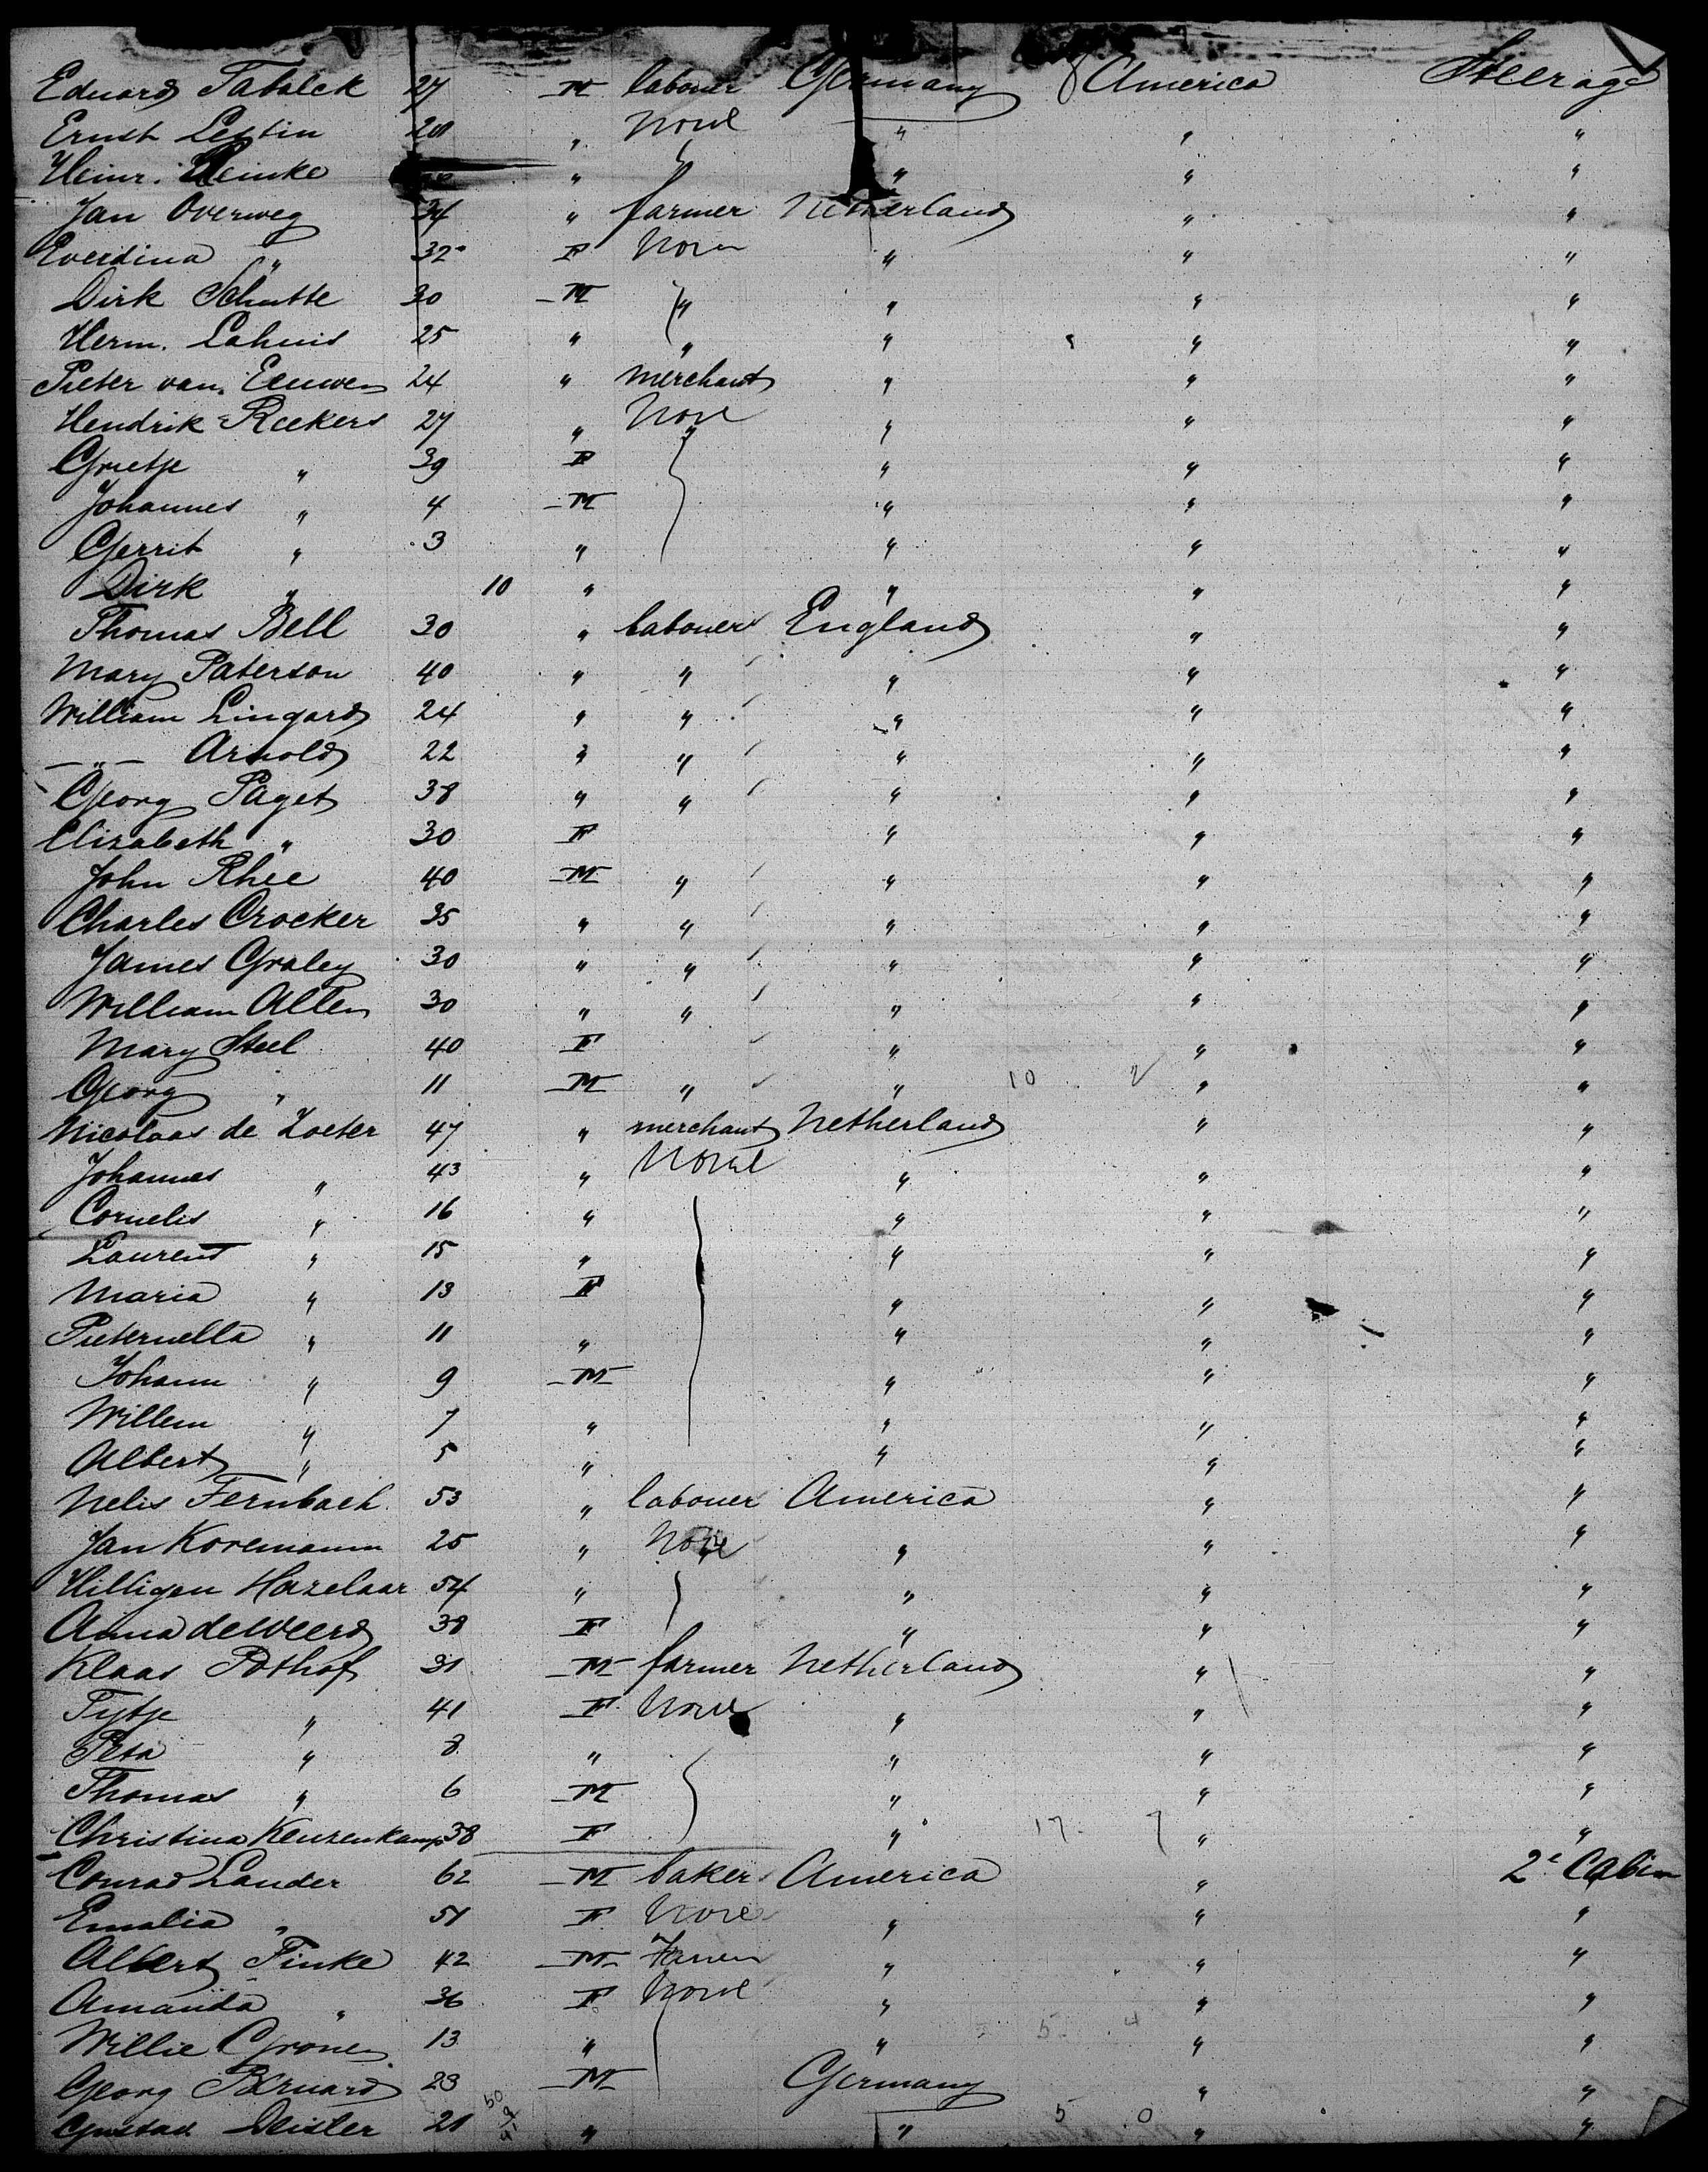 Eduard Tabalck 27 M labourer Germany America Steerage
Ernst Leptin 20 " None " " "
Heinr. Heinke " " " " "
Jan Overweg 34 " farmer Netherland " "
Everdina " 32 F None " " "
Dirk Schutte 30 M " " " "
Herm. Lahuis 25 " " " " "
Pieter van Eeuwen 24 " merchant " " "
Hendrik Reekers 27 " None " " "
Grietje " 39 F " " "
Johannes " 4 M " " "
Gerrit " 3 " " " "
Dirk " 10 " " " "
Thomas Bell 30 " labouer England " "
Mary Paterson 40 " " " " "
William Lingard 24 " " " " "
—"— Arnold 22 " " " " "
Georg Paget 38 " " " " "
Elizabeth " 30 F " " "
John Rhee 40 M " " " "
Charles Crocker 35 " " " " "
James Graley 30 " " " " "
William Allen 30 " " " " "
Mary Steel 40 F " " "
Georg " 11 M " " 10 2 " "
Nicolaas de Zoeter 47 " merchant Netherland " "
Johannes " 43 " None " " "
Cornelis " 16 " " " "
Laurent " 15 " " " "
Maria " 13 F " " "
Pieternella " 11 " " " "
Johann " 9 M " " "
Willem " 7 " " " "
Albert " 5 " " " "
Nelis Fernbach 53 " labouer America " "
Jan Koremann 25 " None " " "
Hilligen Hazelaar 54 " " " "
Anna de Weerd 38 F " " "
Klaas Pothof 31 M farmer Netherland " "
Tytje " 41 F None " " "
Peta " 8 " " " "
Thomas " 6 M " " "
Christina Keuzenkamp 38 F " 17 7 " "
Conrad Lander 62 M baker America " 2e Cabin
Emalia " 51 F None " " "
Albert Finke 42 M " " "
Amanda " 36 F None " " "
Willie Gronen 13 " " 5 4 " "
Georg Bernard 23 M Germany " "
Gustav Meisler 21 50 9 41 " " 5 0 " "